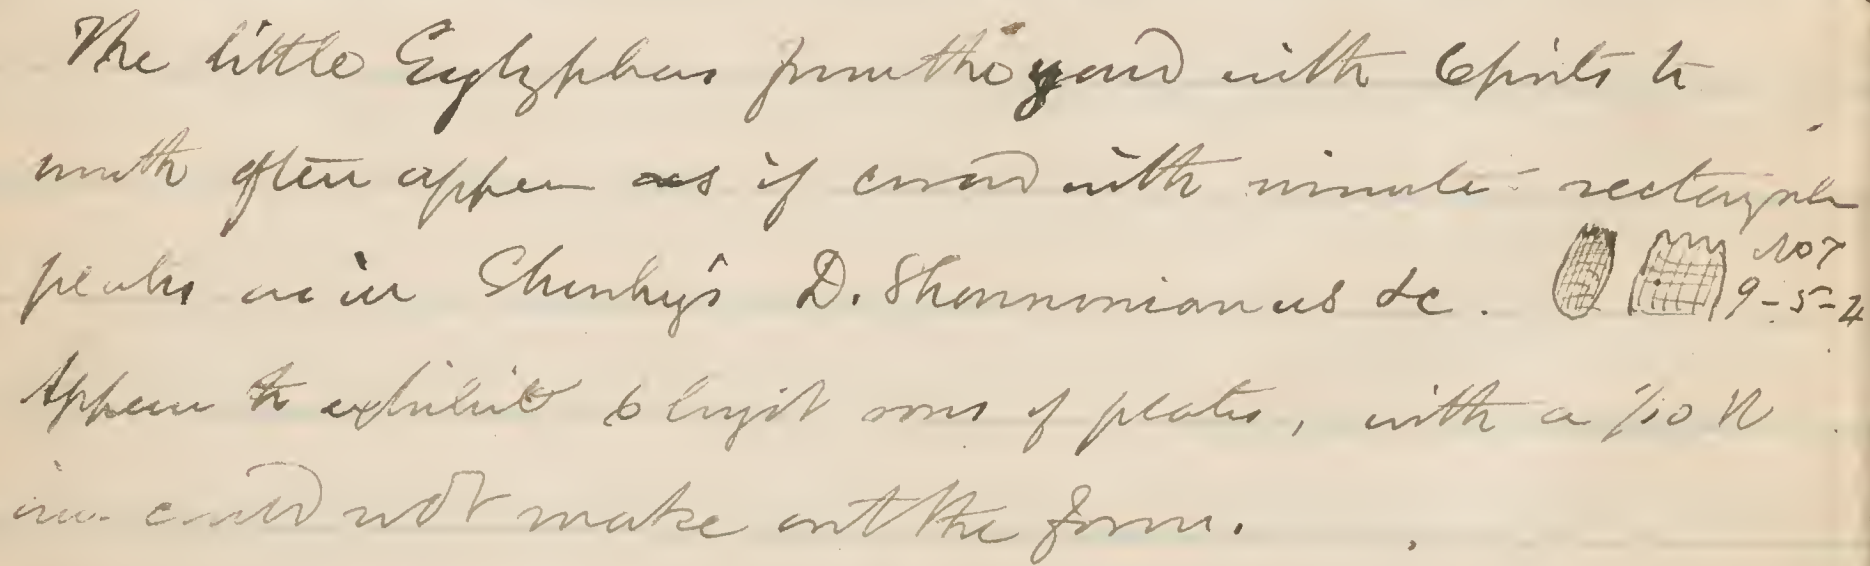 The little Euglyphas from the yard with 6 points to
mouth often appear as if covered with minute rectangular
plates as in Shenky's D. Shannonianus &c. No 7
9-5-4
Appear to exhibit 6 longit rows of plates, with a 1/10 N
im. could not make out the form.